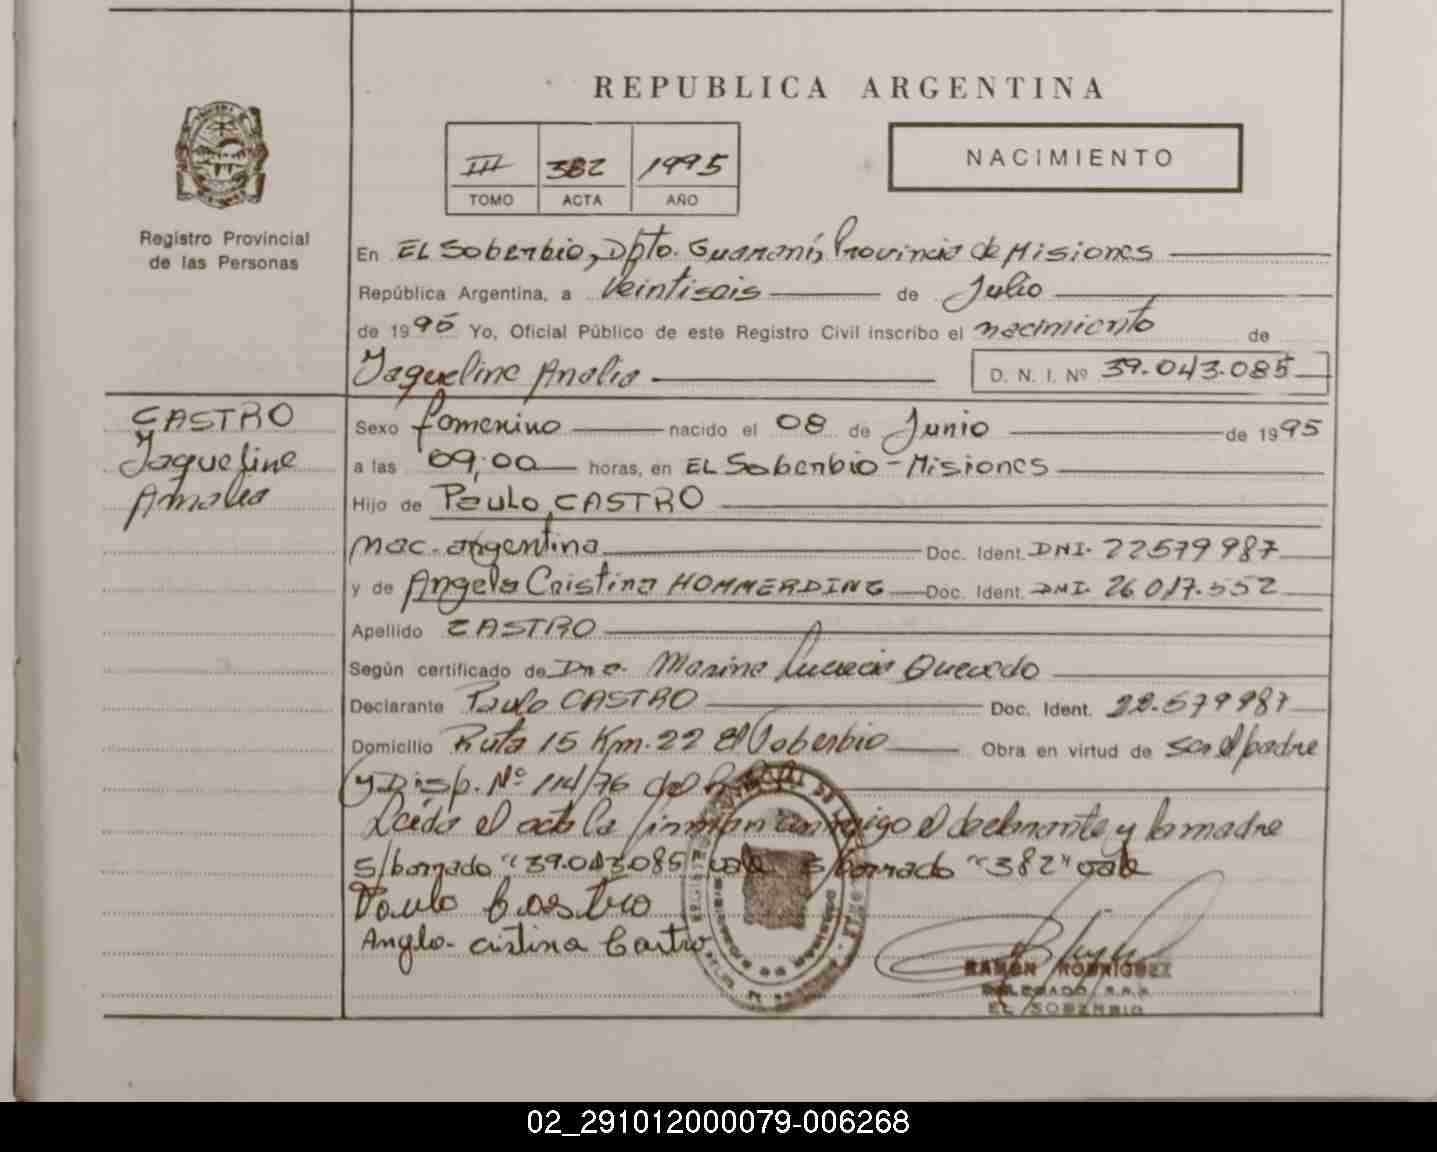 REPUBLICA ARGENTINA
III 382 1995
TOMO ACTA AÑO
NACIMIENTO
Registro Provincial
de las Personas
En EL Soberbio, Dpto. Guaraní, Provincia de Misiones
República Argentina, a Veintiseis de Julio
de 1995 Yo, Oficial Público de este Registro Civil inscribo el nacimiento de
Jaqueline Analia D. N. I. Nº 39.043.085
CASTRO
Jaqueline
Analia
Sexo femenino nacido el 08 de Junio de 1995
a las 09,00 horas, en EL Soberbio - Misiones
Hijo de Paulo CASTRO
nac. argentina Doc. Ident. DNI. 22579987
y de Angela Cristina HOMMERDING Doc. Ident. DNI. 26.017.552
Apellido CASTRO
Según certificado de Dra. Marina Quevedo
Declarante Paulo CASTRO Doc. Ident. 22.579987
Domicilio Ruta 15 Km. 22 El Soberbio Obra en virtud de ser el padre
y Disp. Nº 114/76 del
Leída el acta la firman conmigo el declarante y la madre
S/borrado "39.043.085" vale S/borrado "382" vale
Paulo Castro
Anglo- cistina Castro
RAMON RODRIGUEZ
DELEGADO R.P.P.
EL SOBERBIO
02_291012000079-006268